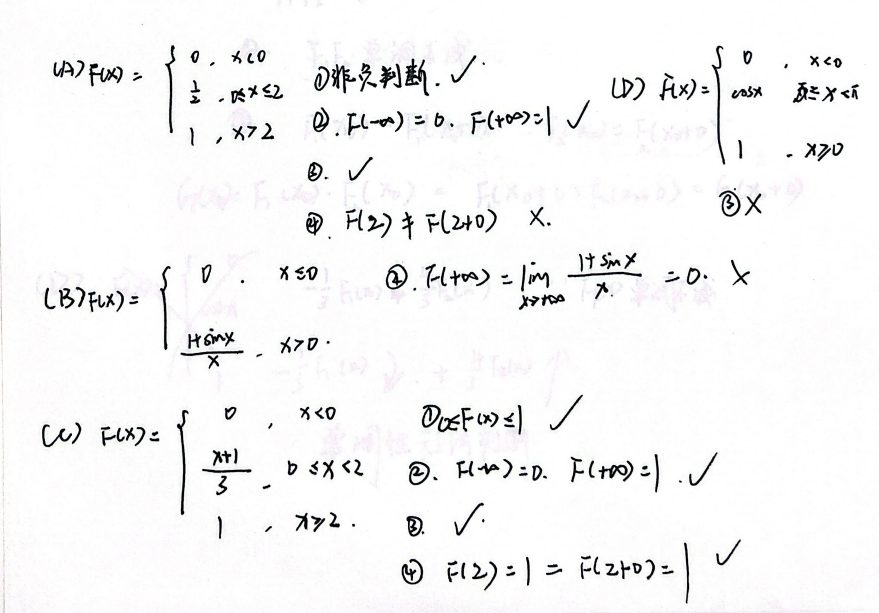 (A) F(x) = { 0 , x<0
1/2 , 0≤x≤2
1 , x>2
①非负判断. ✓
②. F(-∞) = 0. F(+∞)=1 ✓
③. ✓
④. F(2) ≠ F(2+0) ×.
(D) F(x) = { 0 , x<0
cosx
1 . x≥0
③ ×
(B) F(x) = { 0 . x≤0
(1+sinx)/x . x>0.
②. F(+∞) = lim x→+∞ (1+sinx)/x = 0. ×
(C) F(x) = { 0 , x<0
(x+1)/3 . 0≤x<2
1 , x≥2.
①0≤F(x)≤1 ✓
②. F(-∞)=0. F(+∞)=1. ✓
③. ✓.
④ F(2) = 1 = F(2+0) = 1 ✓